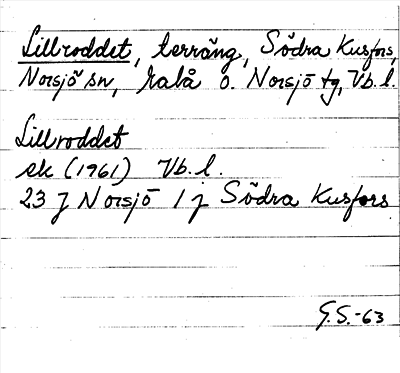 Lillroddet, terräng, Södra Kusfors,
Norsjö sn, Malå o. Norsjö tg, Vb.l.
Lillroddet
ek (1961) Vb.l.
23 J Norsjö 1 j Södra Kusfors
G.S.-63